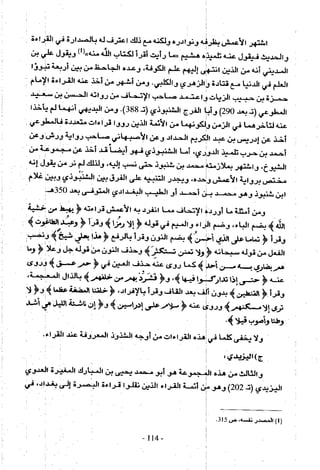 اشتهر الأعمش بظرفه ونوادره ولكنه مع ذلك اعترف له بالصدارة في القراءة
والحديث فيقول عنه تلميذه هشيم «ما رأيت أقرأ لكتاب الله منه»(1) ويقول علي بن
المديني أنه من الذين انتهى إليهم علم الكوفة، وعده الجاحظ من بين أربعة تبوؤا
العلم في الدنيا مع قتادة والزهري والكلبي، ومن أشهر من أخذ عنه القراءة الإمام
حمزة بن حبيب الزيات واعتمد صاحب الإتحاف من رواته الحسن بن سعيد
المطوعي (ت بعد 290) وأبا الفرج الشنبوذي (ت 388). ومن البديهي أنهما لم يأخذا
عنه لتأخرهما في الزمن ولكونهما من الأئمة الذين رووا قراءات متعددة فالمطوعي
أخذ عن إدريس بن عبد الكريم الحداد وعن الأصبهاني صاحب رواية ورش وعن
أحمد بن حرب تلميذ الدوري، أما الشنبوذي فهو أيضا قد أخذ عن مجموعة من
الشيوخ، واشتهر بملازمته محمد بن شنبوذ حتى نسب إليه، ولذلك لم نر من يقول إنه
مختص برواية الأعمش وحده، ويجدر التنبيه على الفرق بين الشنبوذي وبين غلام
ابن شنبوذ وهو محمد بن أحمد أو الطيب البغدادي المتوفى بعد 350هـ.
ومن أمثلة ما أورده الإتحاف مما انفرد به الأعمش قراءته
الله ﴾ بضم الباء، وضم الراء والميم في قوله
وقرأ ﴿ تماما على الذي أحسن ﴾ بضم النون وقرأ بالرفع ﴿ هذا بعلي شيخ ﴾ وبنصب
الفعل من قوله سبحانه ﴿ ولا تمنن تستكثر ﴾ وحذف النون من قوله جل وعلا
كما روى عنه حذف العين في
بالذال المعجمة،
وقرأ بدون ألف بعد القاف وقرأ بالإفراد،
ترى إلا مساكنهم ﴾ وروى عنه
وطئا وأصوب قيلا ﴾.
ولا يخفى كلما في هذه القراءات من أوجه الشذوذ المعروفة عند القراء.
ج) اليزيدي:
والثالث من هذه المجموعة هو أبو محمد يحيى بن المبارك المغيرة العدوي
اليزيدي (ت 202) وهو من أئمة القراء الذين نقلوا قراءة البصرة إلى بغداد، في
(1) المصدر نفسه، ص 315.
- 114 -